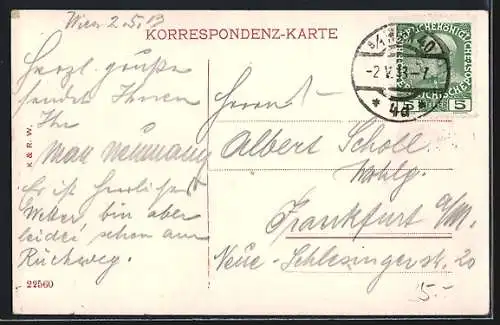 Wien 2.5.13
KORRESPONDENZ-KARTE
Herzl. grüße
sendet Ihnen
Ihr
Max Neumann
Es ist herrliches
Wetter bin aber
leider schon am
Rückweg.
Herrn
Albert Scholl
Wohlg.
Frankfurt a/M.
Neue-Schlesingerstr. 20
5.-
-2.V.13-7
* 4d *
5
K & R. W.
22560